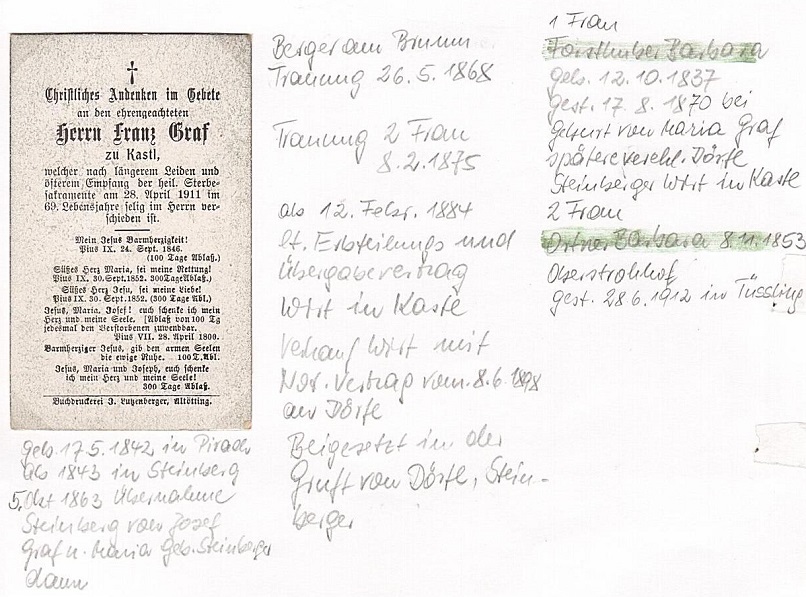 Christliches Andenken im Gebete
an den ehrengeachteten
Herrn Franz Graf
zu Kastl,
welcher nach längerem Leiden und
öfterem Empfang der heil. Sterbe-
sakramente am 28. April 1911 im
69. Lebensjahre selig im Herrn ver-
schieden ist.
Mein Jesus Barmherzigkeit!
Pius IX. 24. Sept. 1846.
(100 Tage Ablaß.)
Süßes Herz Maria, sei meine Rettung!
Pius IX. 30. Sept. 1852. 300 Tage Ablaß.)
Süßes Herz Jesu, sei meine Liebe!
Pius IX. 30. Sept. 1852. (300 Tage Abl.)
Jesus, Maria, Josef! euch schenke ich mein
Herz und meine Seele. [Ablaß von 100 Tg
jedesmal den Verstorbenen zuwendbar.
Pius VII. 28. April 1800.
Barmherziger Jesus, gib den armen Seelen
die ewige Ruhe. 100 T. Abl.
Jesus, Maria und Joseph, euch schenke
ich mein Herz und meine Seele!
300 Tage Ablaß.
Buchdruckerei J. Lutzenberger, Altötting.
geb. 17.5.1842 in Pirach
ab 1843 in Steinberg
5. Okt 1863 Übernahme
Steinberg von Josef
Graf u. Maria geb. Steinberger
dann
Berger am Brunn
Trauung 26.5.1868
Trauung 2 Frau
8.2.1875
ab 12. Febr. 1884
lt. Erbteilungs und
Übergabevertrag
Wirt in Kastl
Verkauf Wirt mit
Not. Vertrag vom 8.6.1898
an Dörfl
Beigesetzt in der
Gruft von Dörfl, Stein-
berger
1 Frau
Forsthuber Barbara
geb. 12.10.1837
gest. 17.8.1870 bei
Geburt von Maria Graf
spätere verehl. Dörfl
Steinberger Wirt in Kastl
2 Frau
Ortner Barbara 8.11.1853
Oberstrohhof
gest. 28.6.1912 in Tüssling